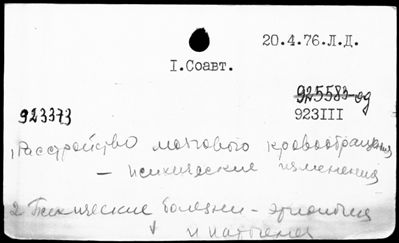 20.4.76.Л.Д.
I.Соавт.
925583-од
923373
923III
1, Расстройство мозгового кровообращения
- психические изменения
2. Психические болезни - этиология
и патогенез